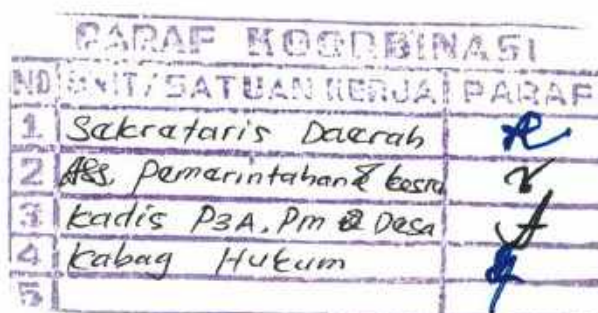 PARAF KOORDINASI
NO UNIT/SATUAN KERJA PARAF
1 Sakrataris Daerah
2 Ass. Pamarintahan & kesra
3 kadis P3A. Pm & Desa
4 kabag Hukum
5